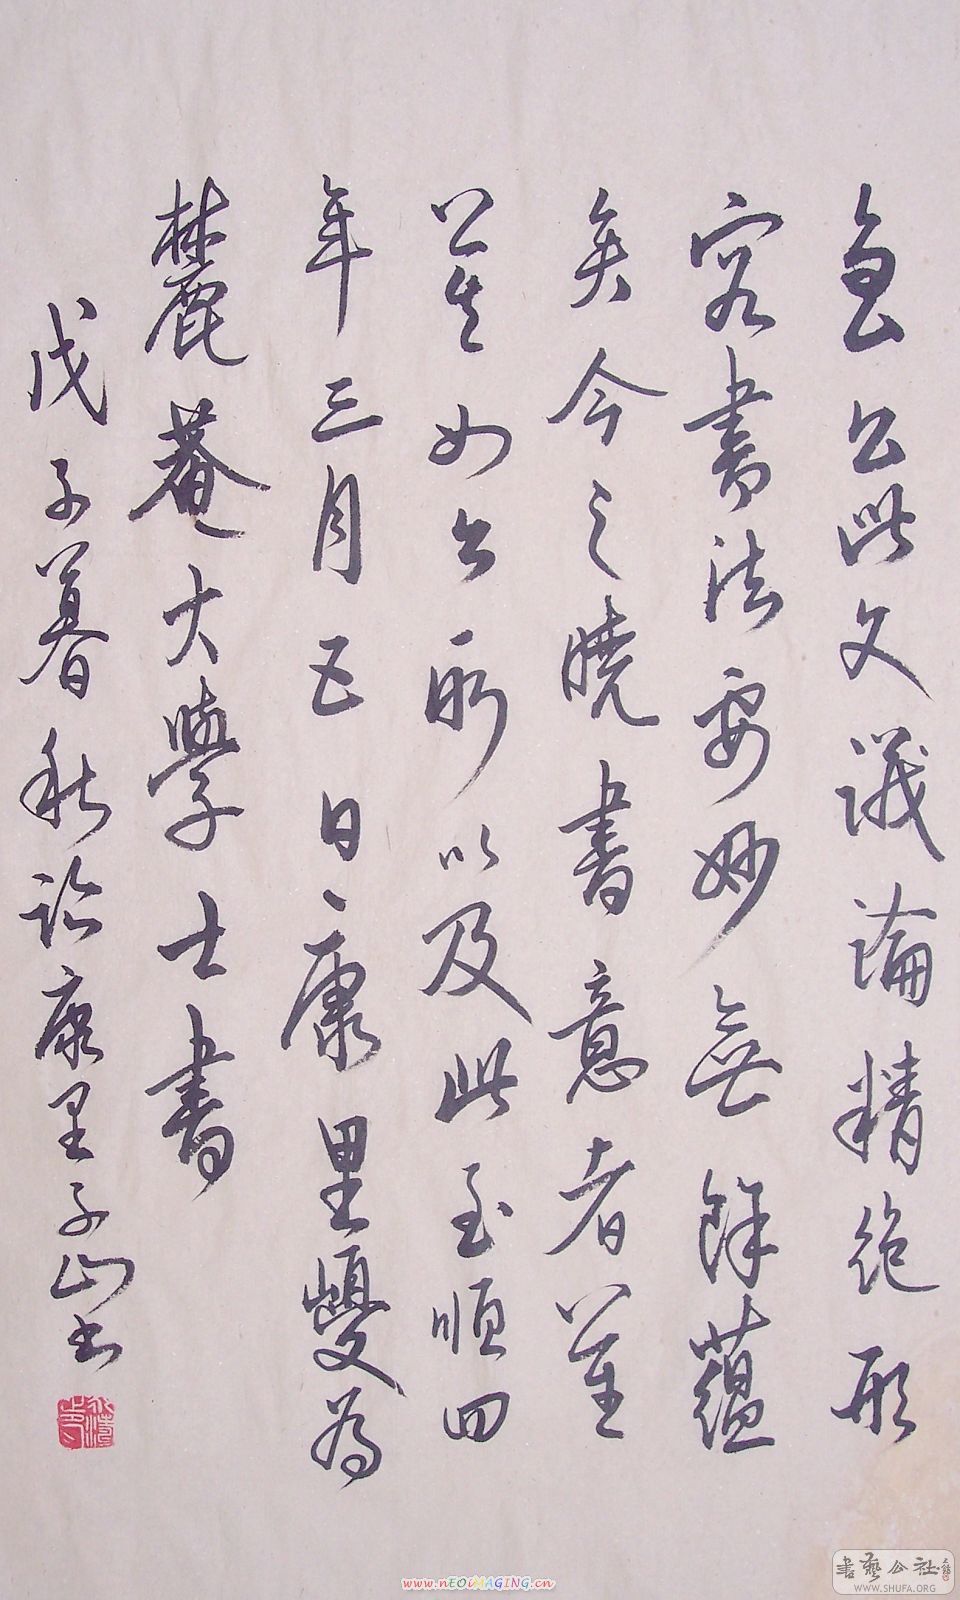 魯公此文議論精絶形
容書法要妙無餘藴
矣今之曉書意者
莫如公所以及此至順四
年三月五日康里巎為
麓菴大學士書
戊子暮秋臨康里子山書
書藝公社
WWW.SHUFA.ORG
www.nEOiMAGING.cn